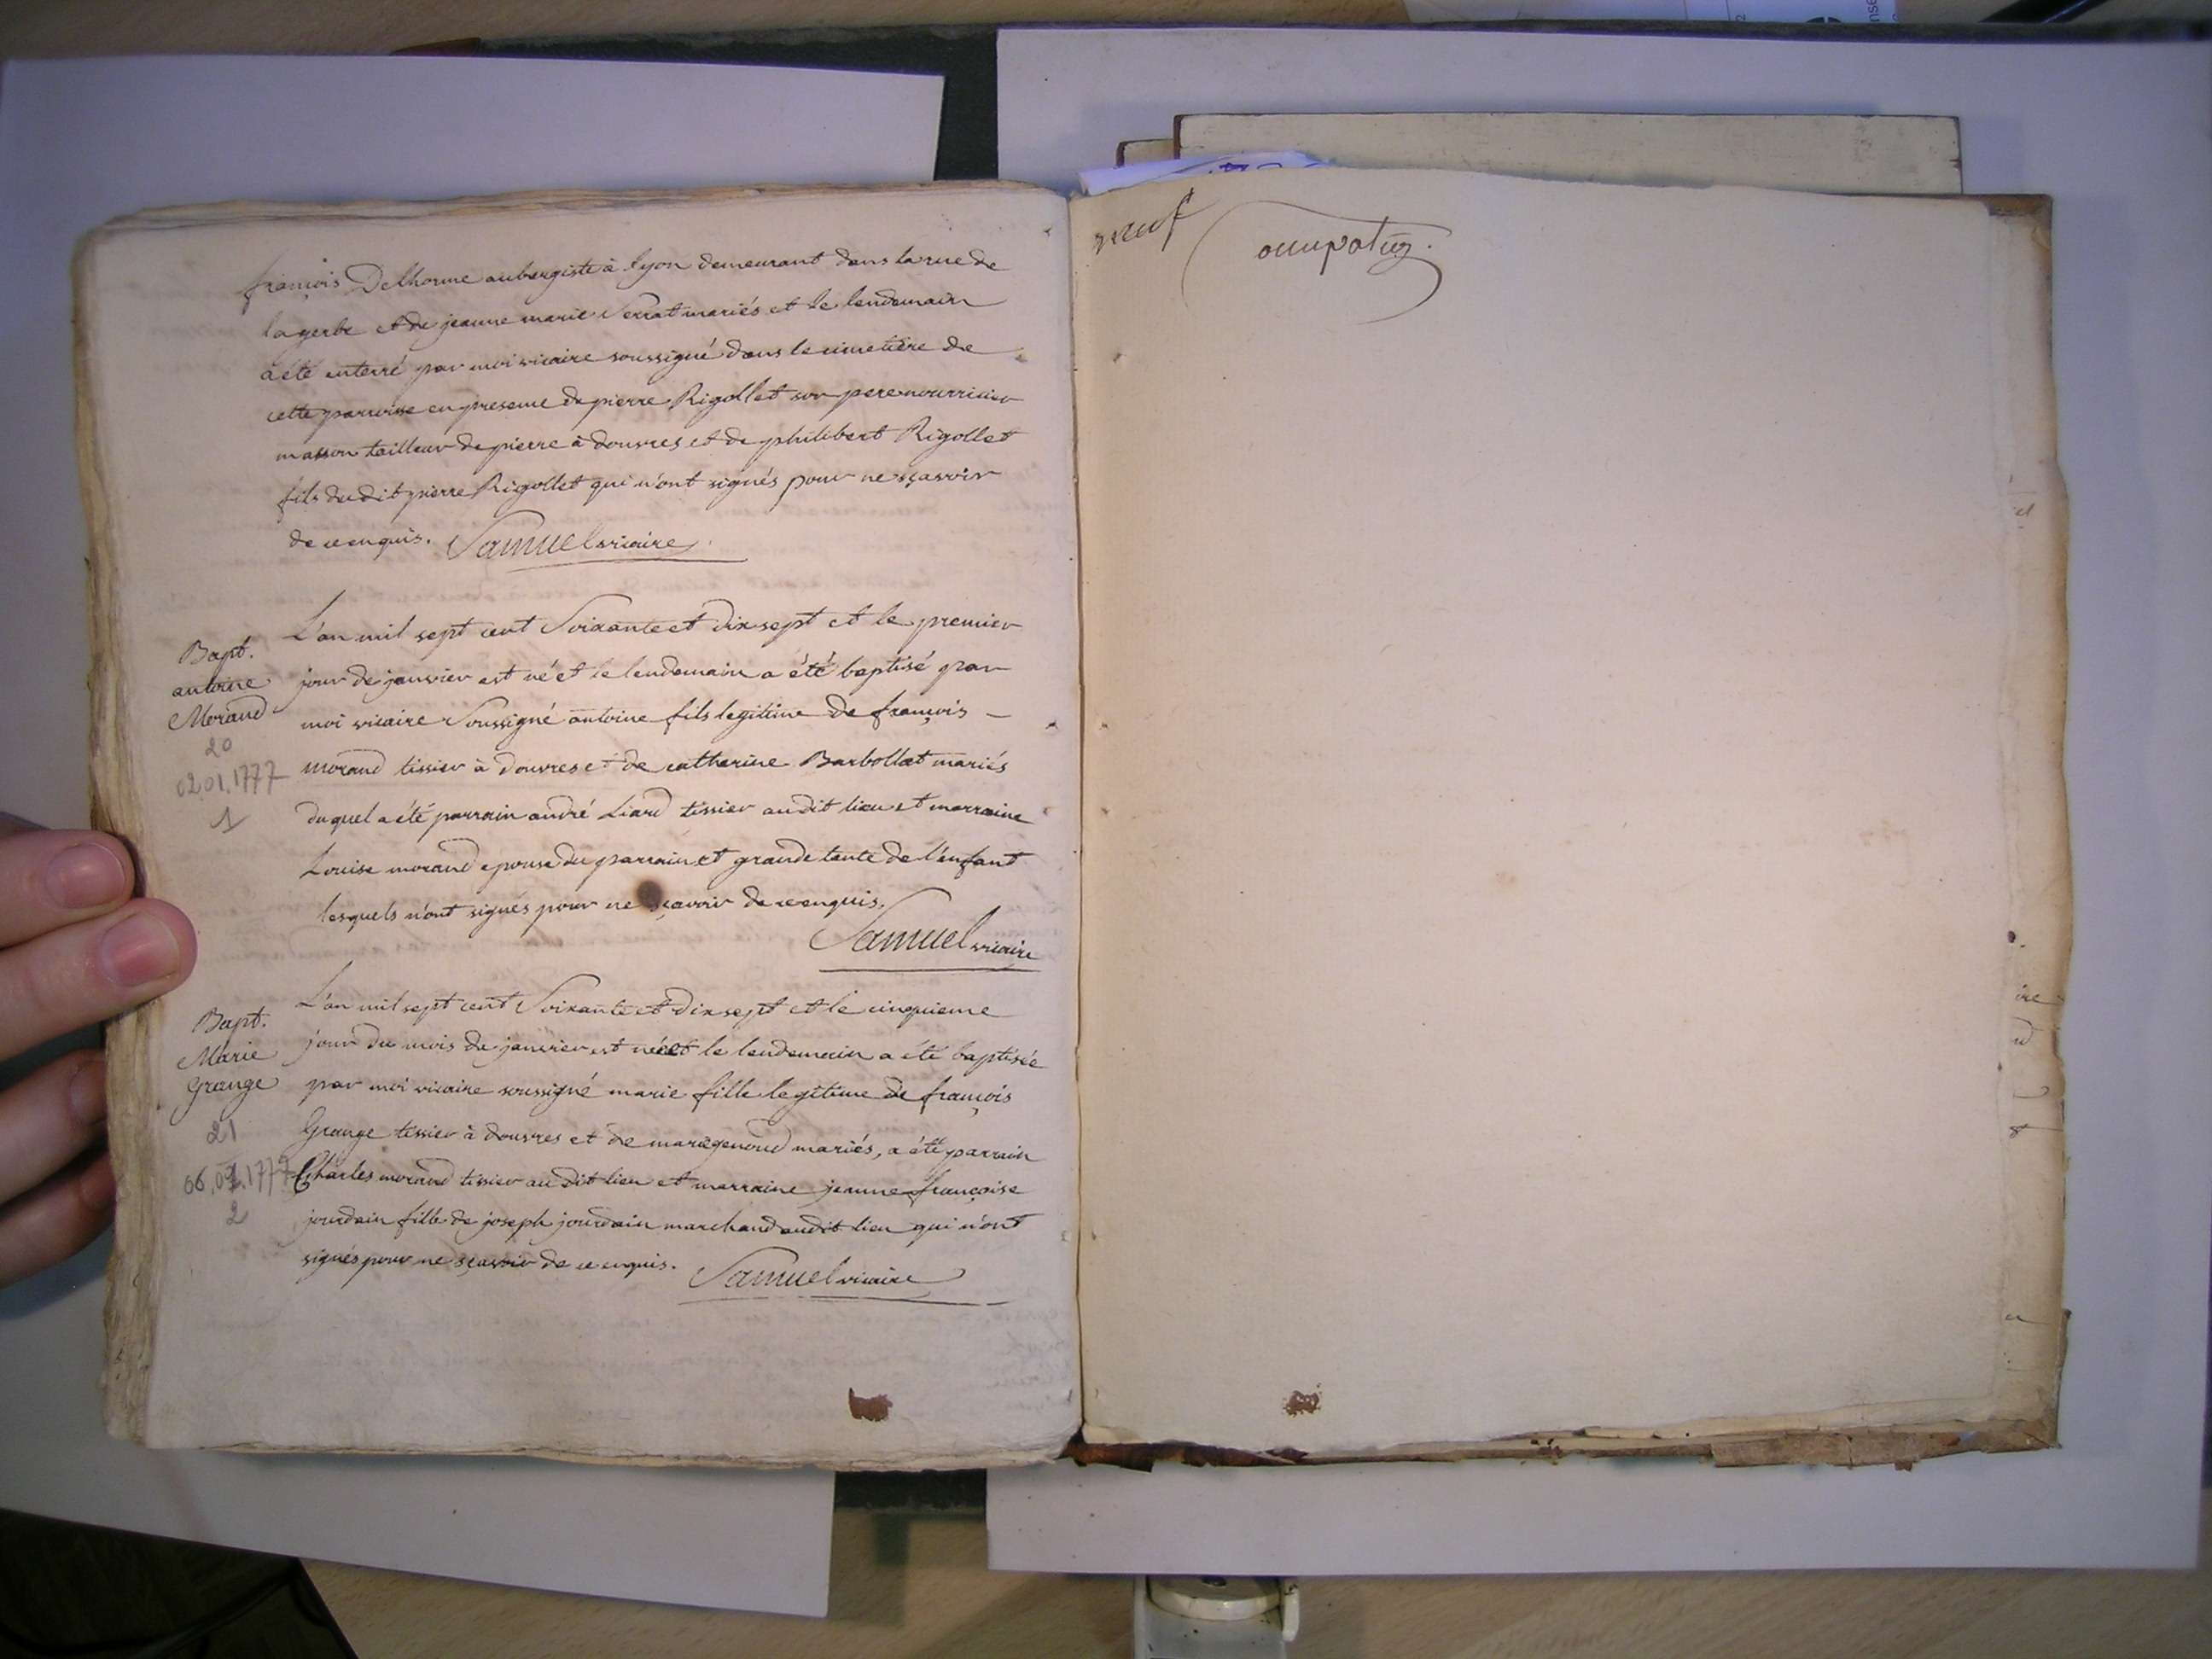 françois Delhorme aubergiste à lyon demeurant dans la rue de
la gerbe et de jeanne marie Serrat mariés et le lendemain
a été enterré par moi vicaire soussigné dans le cimetière de
cette parroisse en presence de pierre Rigollet son pere nourricier
masson tailleur de pierre à douvres et de philibert Rigollet
fils du dit pierre Rigollet qui n'ont signés pour ne sçavoir
de ce enquis. Samuel vicaire
Bapt.
antoine
Morand
20
02.01.1777
1
L'an mil sept cent Soixante et dix sept et le premier
jour de janvier est né et le lendemain a été baptisé par
moi vicaire Soussigné antoine fils legitime de françois
morand tissier à douvres et de catherine Barbollat mariés
duquel a été parrain andré Liard tissier audit lieu et marraine
Louise morand epouse du parrain et grande tante de l'enfant
lesquels n'ont signés pour ne sçavoir de ce enquis.
Samuel vicaire
Bapt.
Marie
grange
21
06.01.1777
2
L'an mil sept cent Soixante et dix sept et le cinquieme
jour du mois de janvier est née et le lendemain a été baptisée
par moi vicaire soussigné marie fille legitime de françois
Grange tissier à douvres et de marie genoud mariés, a été parrain
Charles morand tissier au dit lieu et marraine jeanne françoise
jourdain fille de joseph jourdain marchand audit lieu qui n'ont
signés pour ne sçavoir de ce enquis. Samuel vicaire
neuf